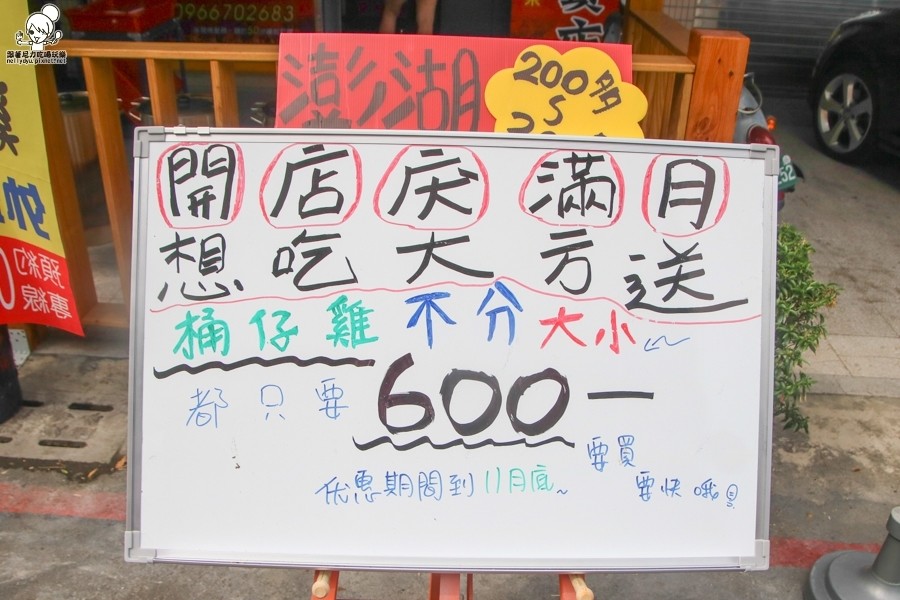 跟著尼力吃喝玩樂
nellydyu.pixnet.net
0966702683
澎湖
200多
5
開店慶滿月
想吃大方送
桶仔雞不分大小
都只要600一
要買
要快哦
優惠期間到11月底~
預約
專線